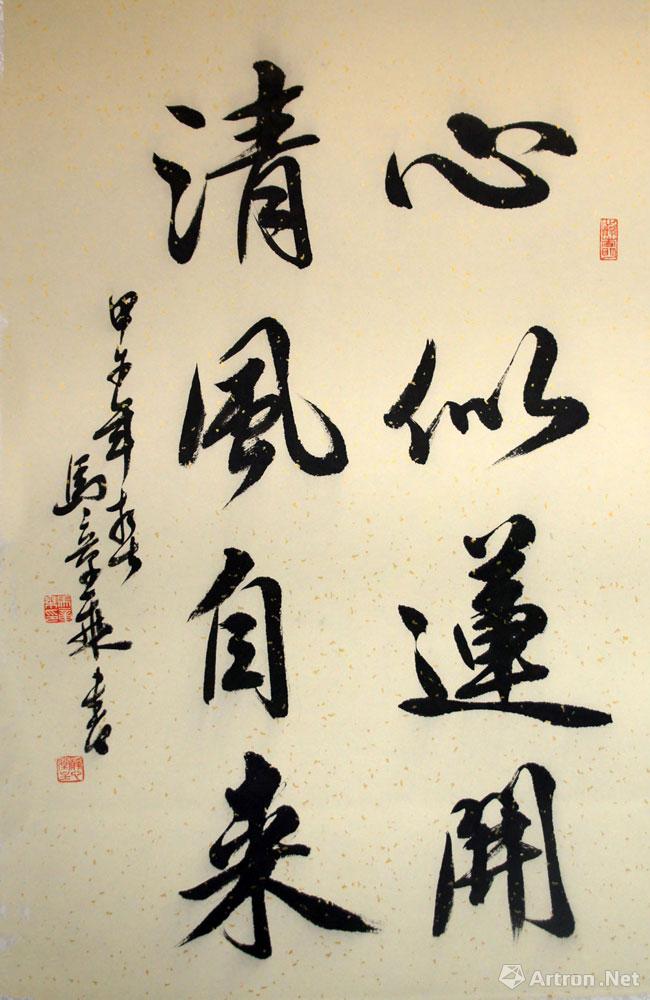 心似蓮開
清風自来
甲午年
馬章乘書
Artron.Net